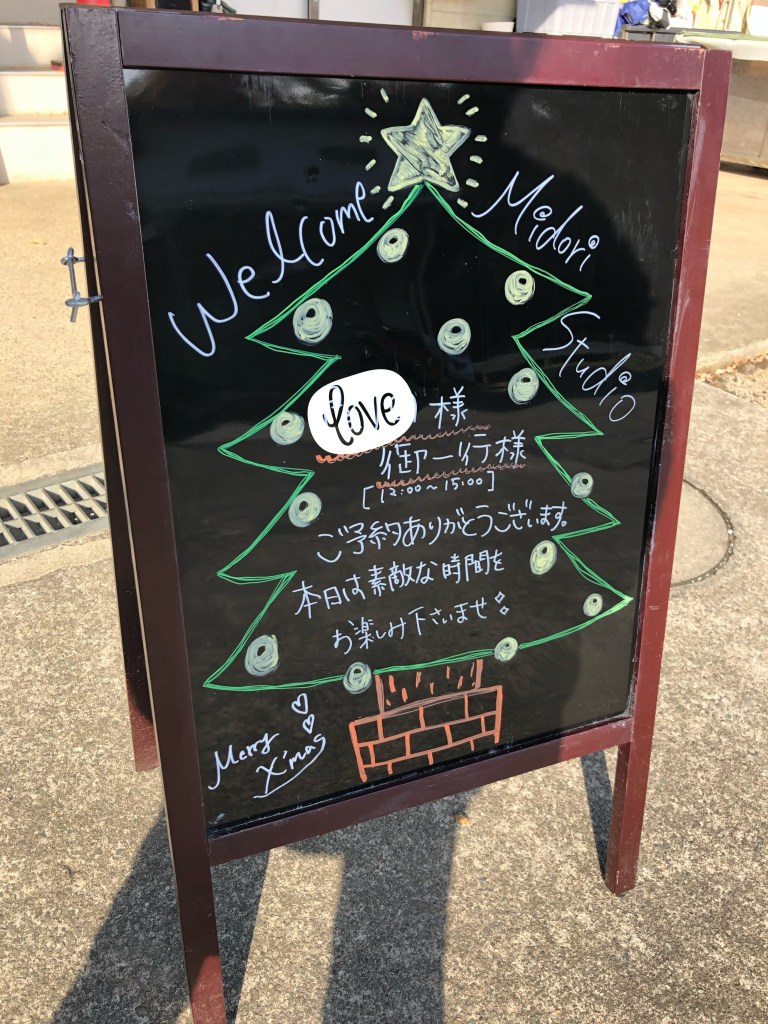 Welcome
Midori
Studio
love 様
御一行様
[12:00〜15:00]
ご予約ありがとうございます。
本日は素敵な時間を
お楽しみ下さいませ
Merry
X'mas